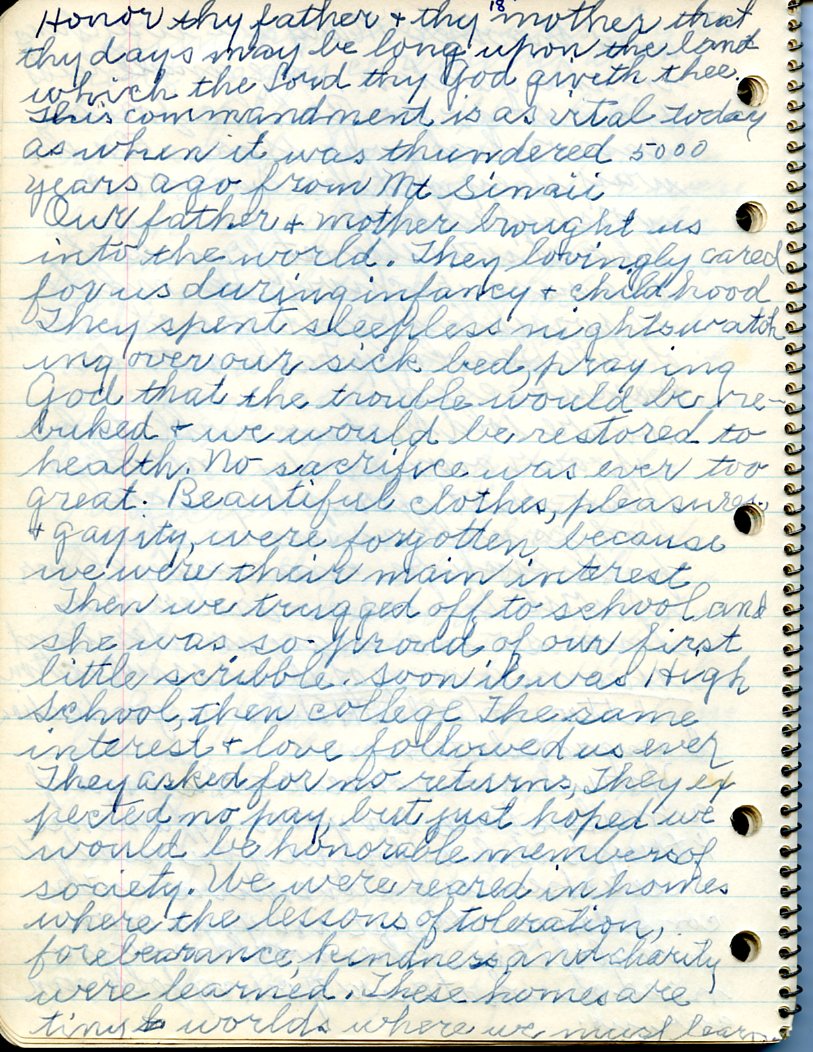 18
Honor thy father + thy mother that
thy days may be long upon the land
which the Lord thy God giveth thee.
This commandment is as vital today
as when it was thundered 5000
years ago from Mt Sinaii
Our father + mother brought us
into the world. They lovingly cared
for us during infancy + childhood
They spent sleepless nights watch
ing over our sick bed, praying
God that the trouble would be re-
buked + we would be restored to
health. No sacrifice was ever too
great. Beautiful clothes, pleasures,
+ gayity, were forgotten, because
we were their main interest
Then we trugged off to school, and
she was so proud of our first
little scribble. Soon it was High
School, then college The same
interest + love followed us ever
They asked for no returns, They ex
pected no pay, but just hoped we
would be honorable members of
society. We were reared in homes
where the lessons of toleration,
forebearance, kindness, and charity
were learned. These homes are
tiny worlds where we must learn